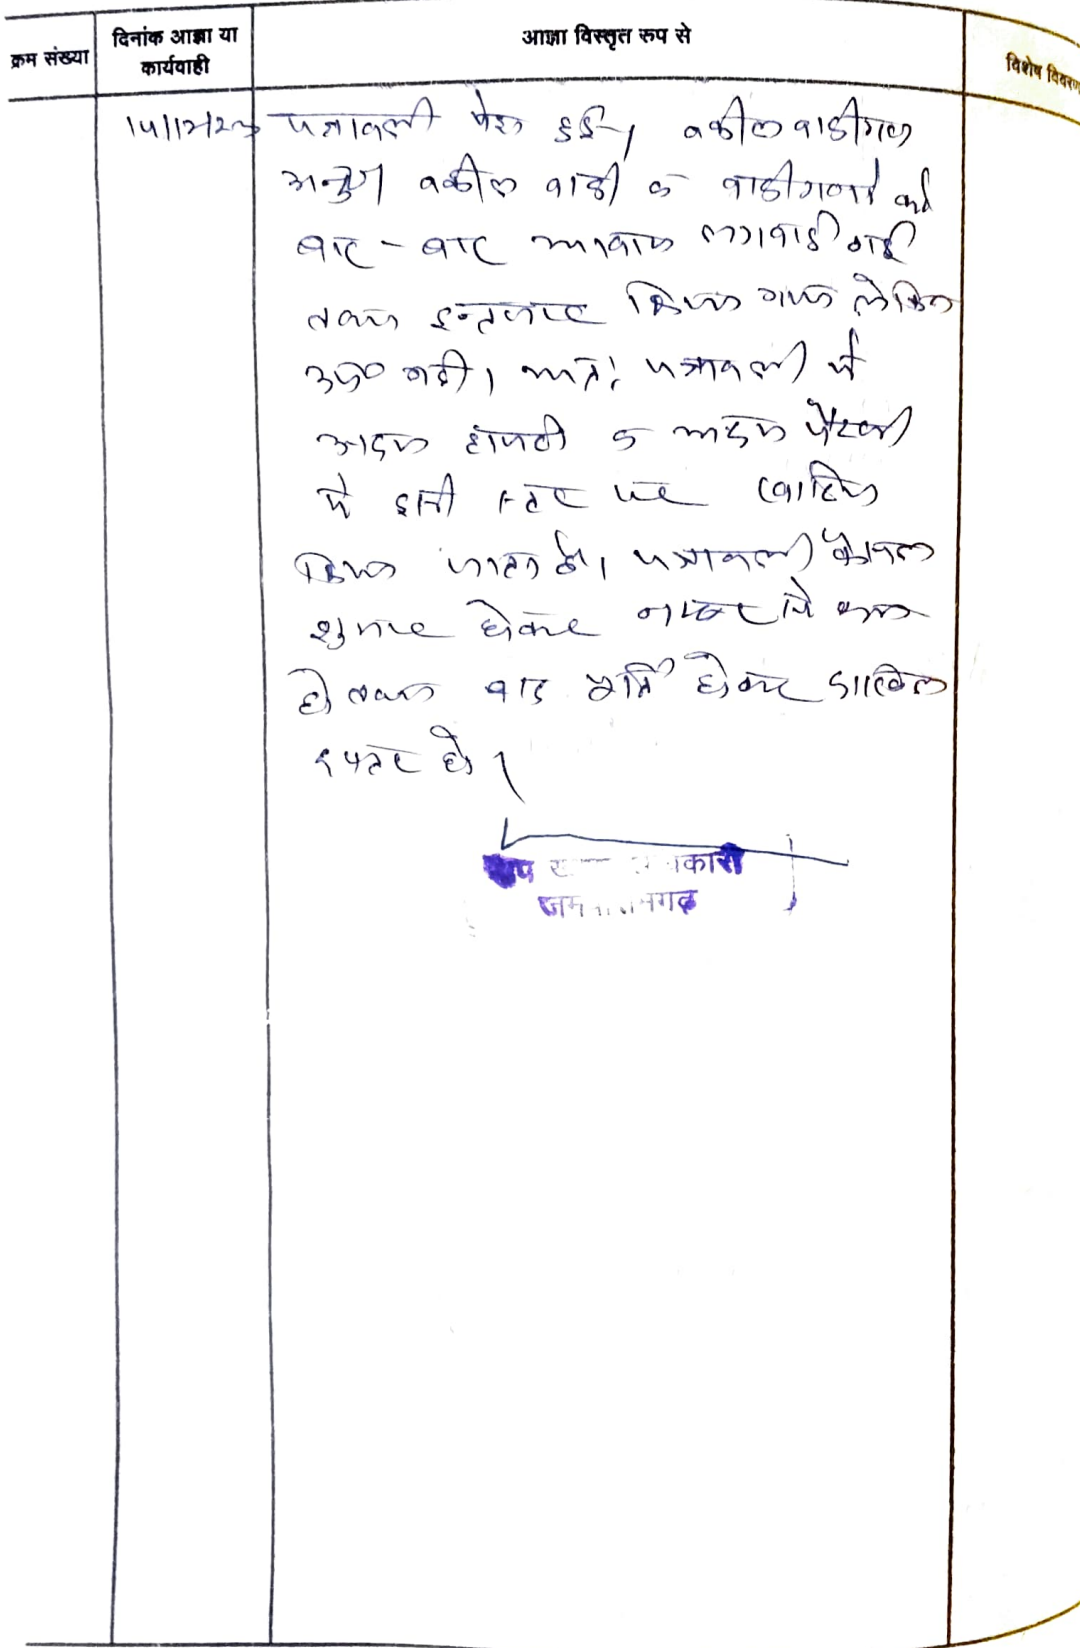 क्रम संख्या
दिनांक आज्ञा या
कार्यवाही
आज्ञा विस्तृत रुप से
विशेष विवरण
पत्रावली पेश हुई। वकील वादीगण
अनु0। वकील वादी व वादीगणों को
बार - बार आवाज लगवाई गई
तथा इन्तजार किया गया लेकिन
उप0 नहीं। अतः पत्रावली में
अदम हाजरी व अदम पैरवी
में इसी स्तर पर खारिज
किया जाता है। पत्रावली फैसल
शुमार होकर नम्बर से कम
हो तथा बाद पूर्ति होकर दाखिल
दफ्तर हो।
उप ख अधिकारी
जम नगढ